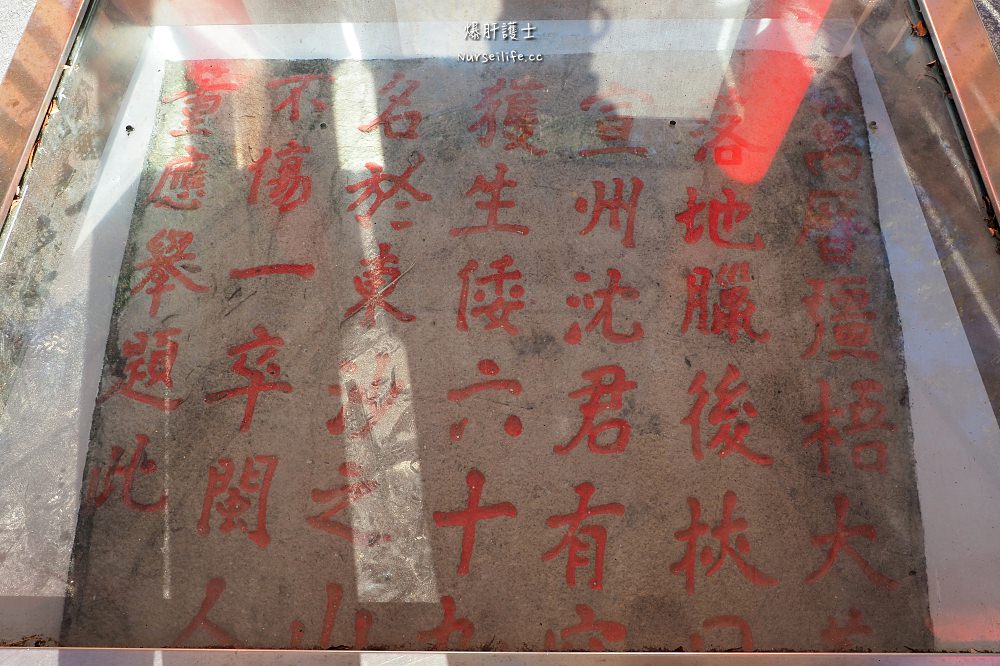 爆肝護士
nurseilife.cc
萬曆彊梧大
落地臘後挾
宣州沈君有容
獲生倭六十九
名於東沙之山
不傷一卒閩人
董應舉題此